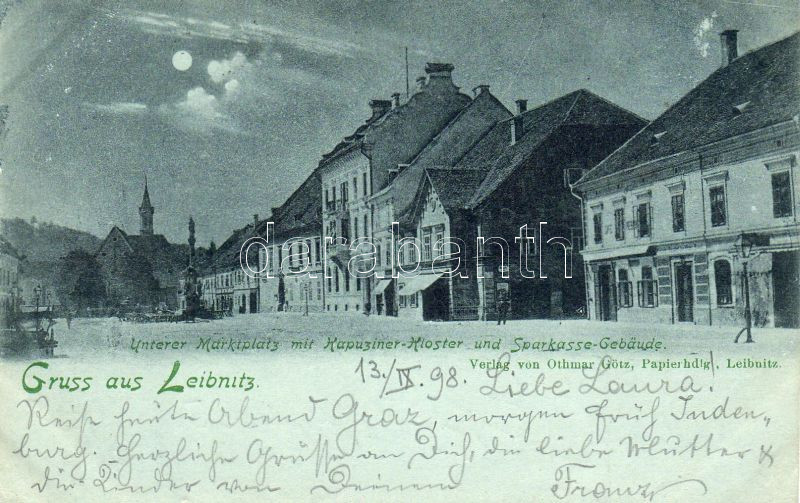 darabanth
Unterer Marktplatz mit Kapuziner-Kloster und Sparkasse-Gebäude.
Verlag von Othmar Götz, Papierhdlg, Leibnitz.
Gruss aus Leibnitz.
13./IX. 98. Liebe Laura!
Reise heute Abend Graz, morgen früh Juden-
burg. Herzliche Grüsse an Dich, die liebe Mutter &
die Kinder von Deinem Franz